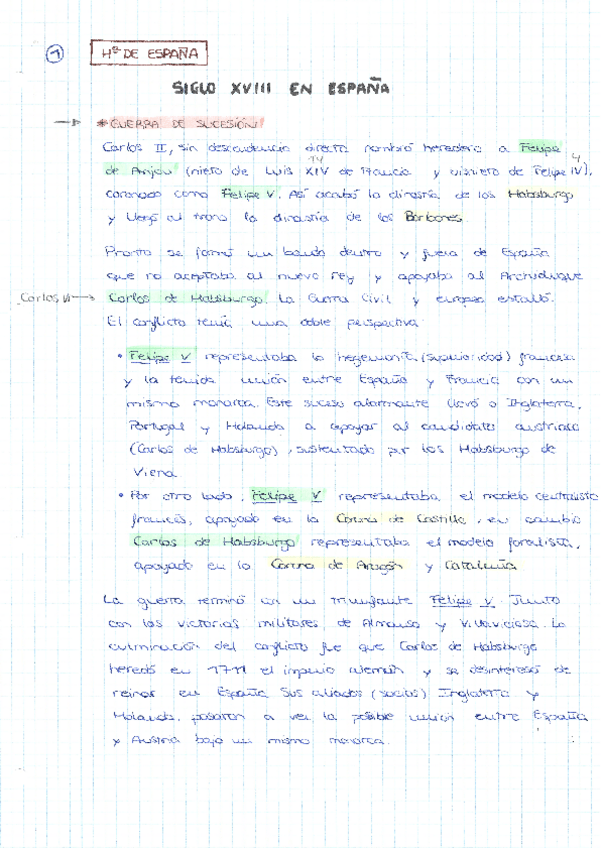 1
Hª DE ESPAÑA
SIGLO XVIII EN ESPAÑA
→ * GUERRA DE SUCESIÓN
Carlos II, sin descendencia directa nombró heredero a Felipe
14 4
de Anjou (nieto de Luis XIV de Francia y bisnieto de Felipe IV),
coronado como Felipe V. Así acabó la dinastía de los Habsburgo
y llegó al trono la dinastía de los Borbones.
Pronto se formó un bando dentro y fuera de España
que no aceptaba al nuevo rey y apoyaba al Archiduque
Carlos VI → Carlos de Habsburgo. La Guerra Civil y europea estalló.
El conflicto tenía una doble perspectiva:
• Felipe V representaba la hegemonía (superioridad) francesa
y la temida unión entre España y Francia con un
mismo monarca. Este suceso alarmante llevó a Inglaterra,
Portugal y Holanda a apoyar al candidato austriaco
(Carlos de Habsburgo), sustentado por los Habsburgo de
Viena.
• Por otro lado, Felipe V representaba el modelo centralista
francés, apoyado en la Corona de Castilla, en cambio
Carlos de Habsburgo representaba el modelo foralista,
apoyado en la Corona de Aragón y Cataluña
La guerra terminó con un triunfante Felipe V. Junto
con las victorias militares de Almansa y Villaviciosa. La
culminación del conflicto fue que Carlos de Habsburgo
heredó en 1711 el imperio alemán y se desinteresó de
reinar en España. Sus aliados (socios) Inglaterra y
Holanda, pasaron a ver la posible unión entre España
y Austria bajo un mismo monarca.